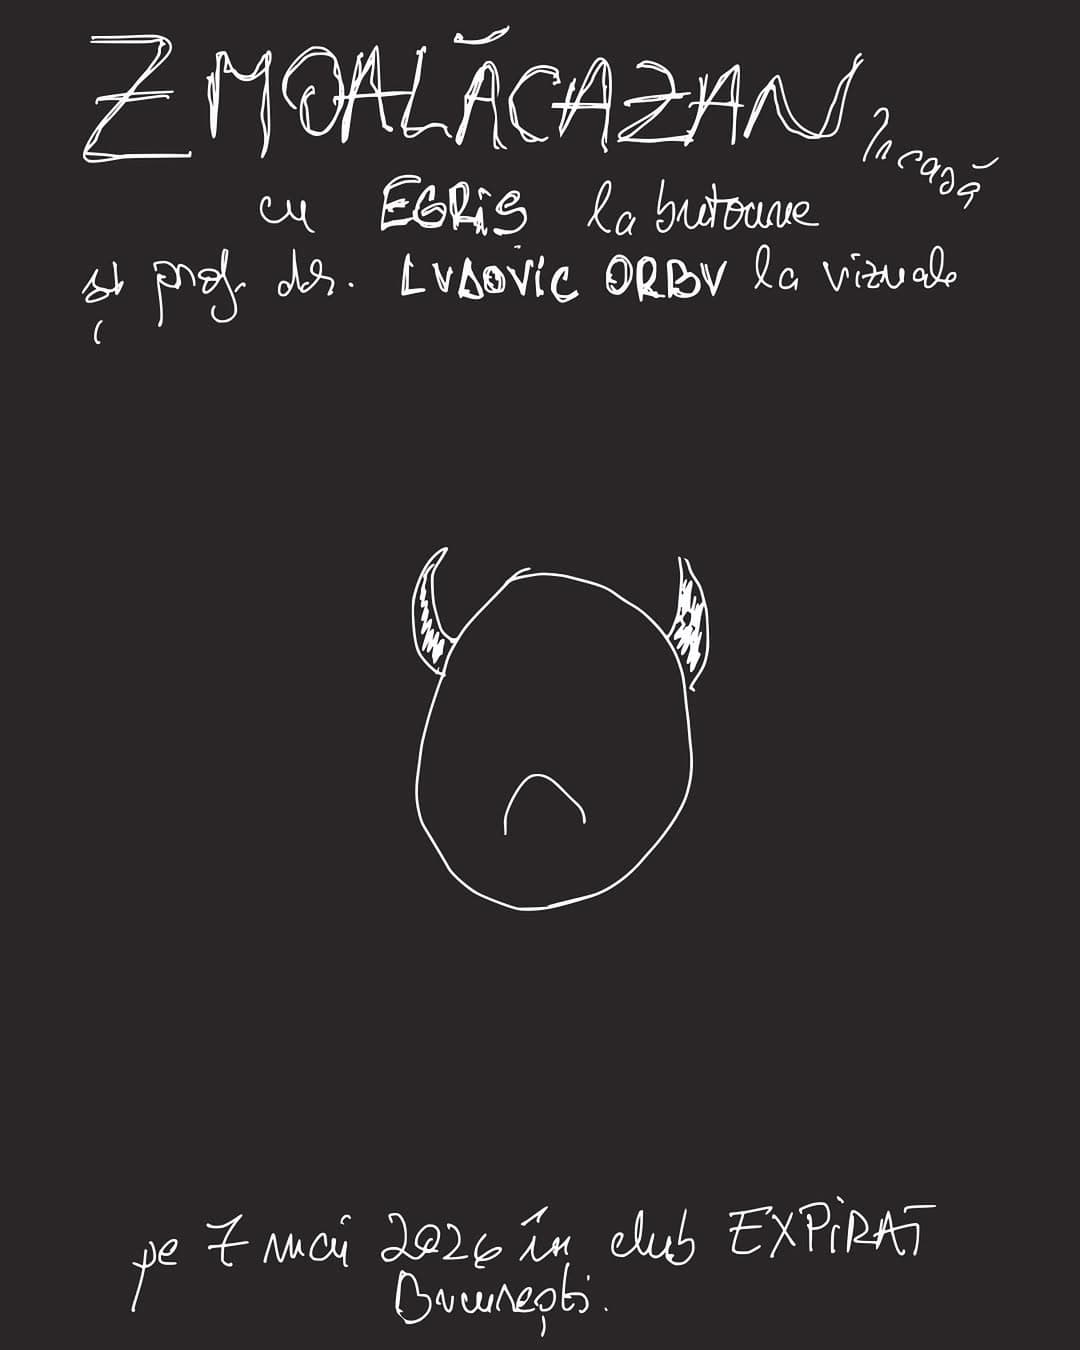 ZMOALĂCAZAN în casă
cu EGRiS la butoane
și prof. dr. LVDOViC ORBV la vizuale
pe 7 mai 2026 în club EXPiRAT
București.